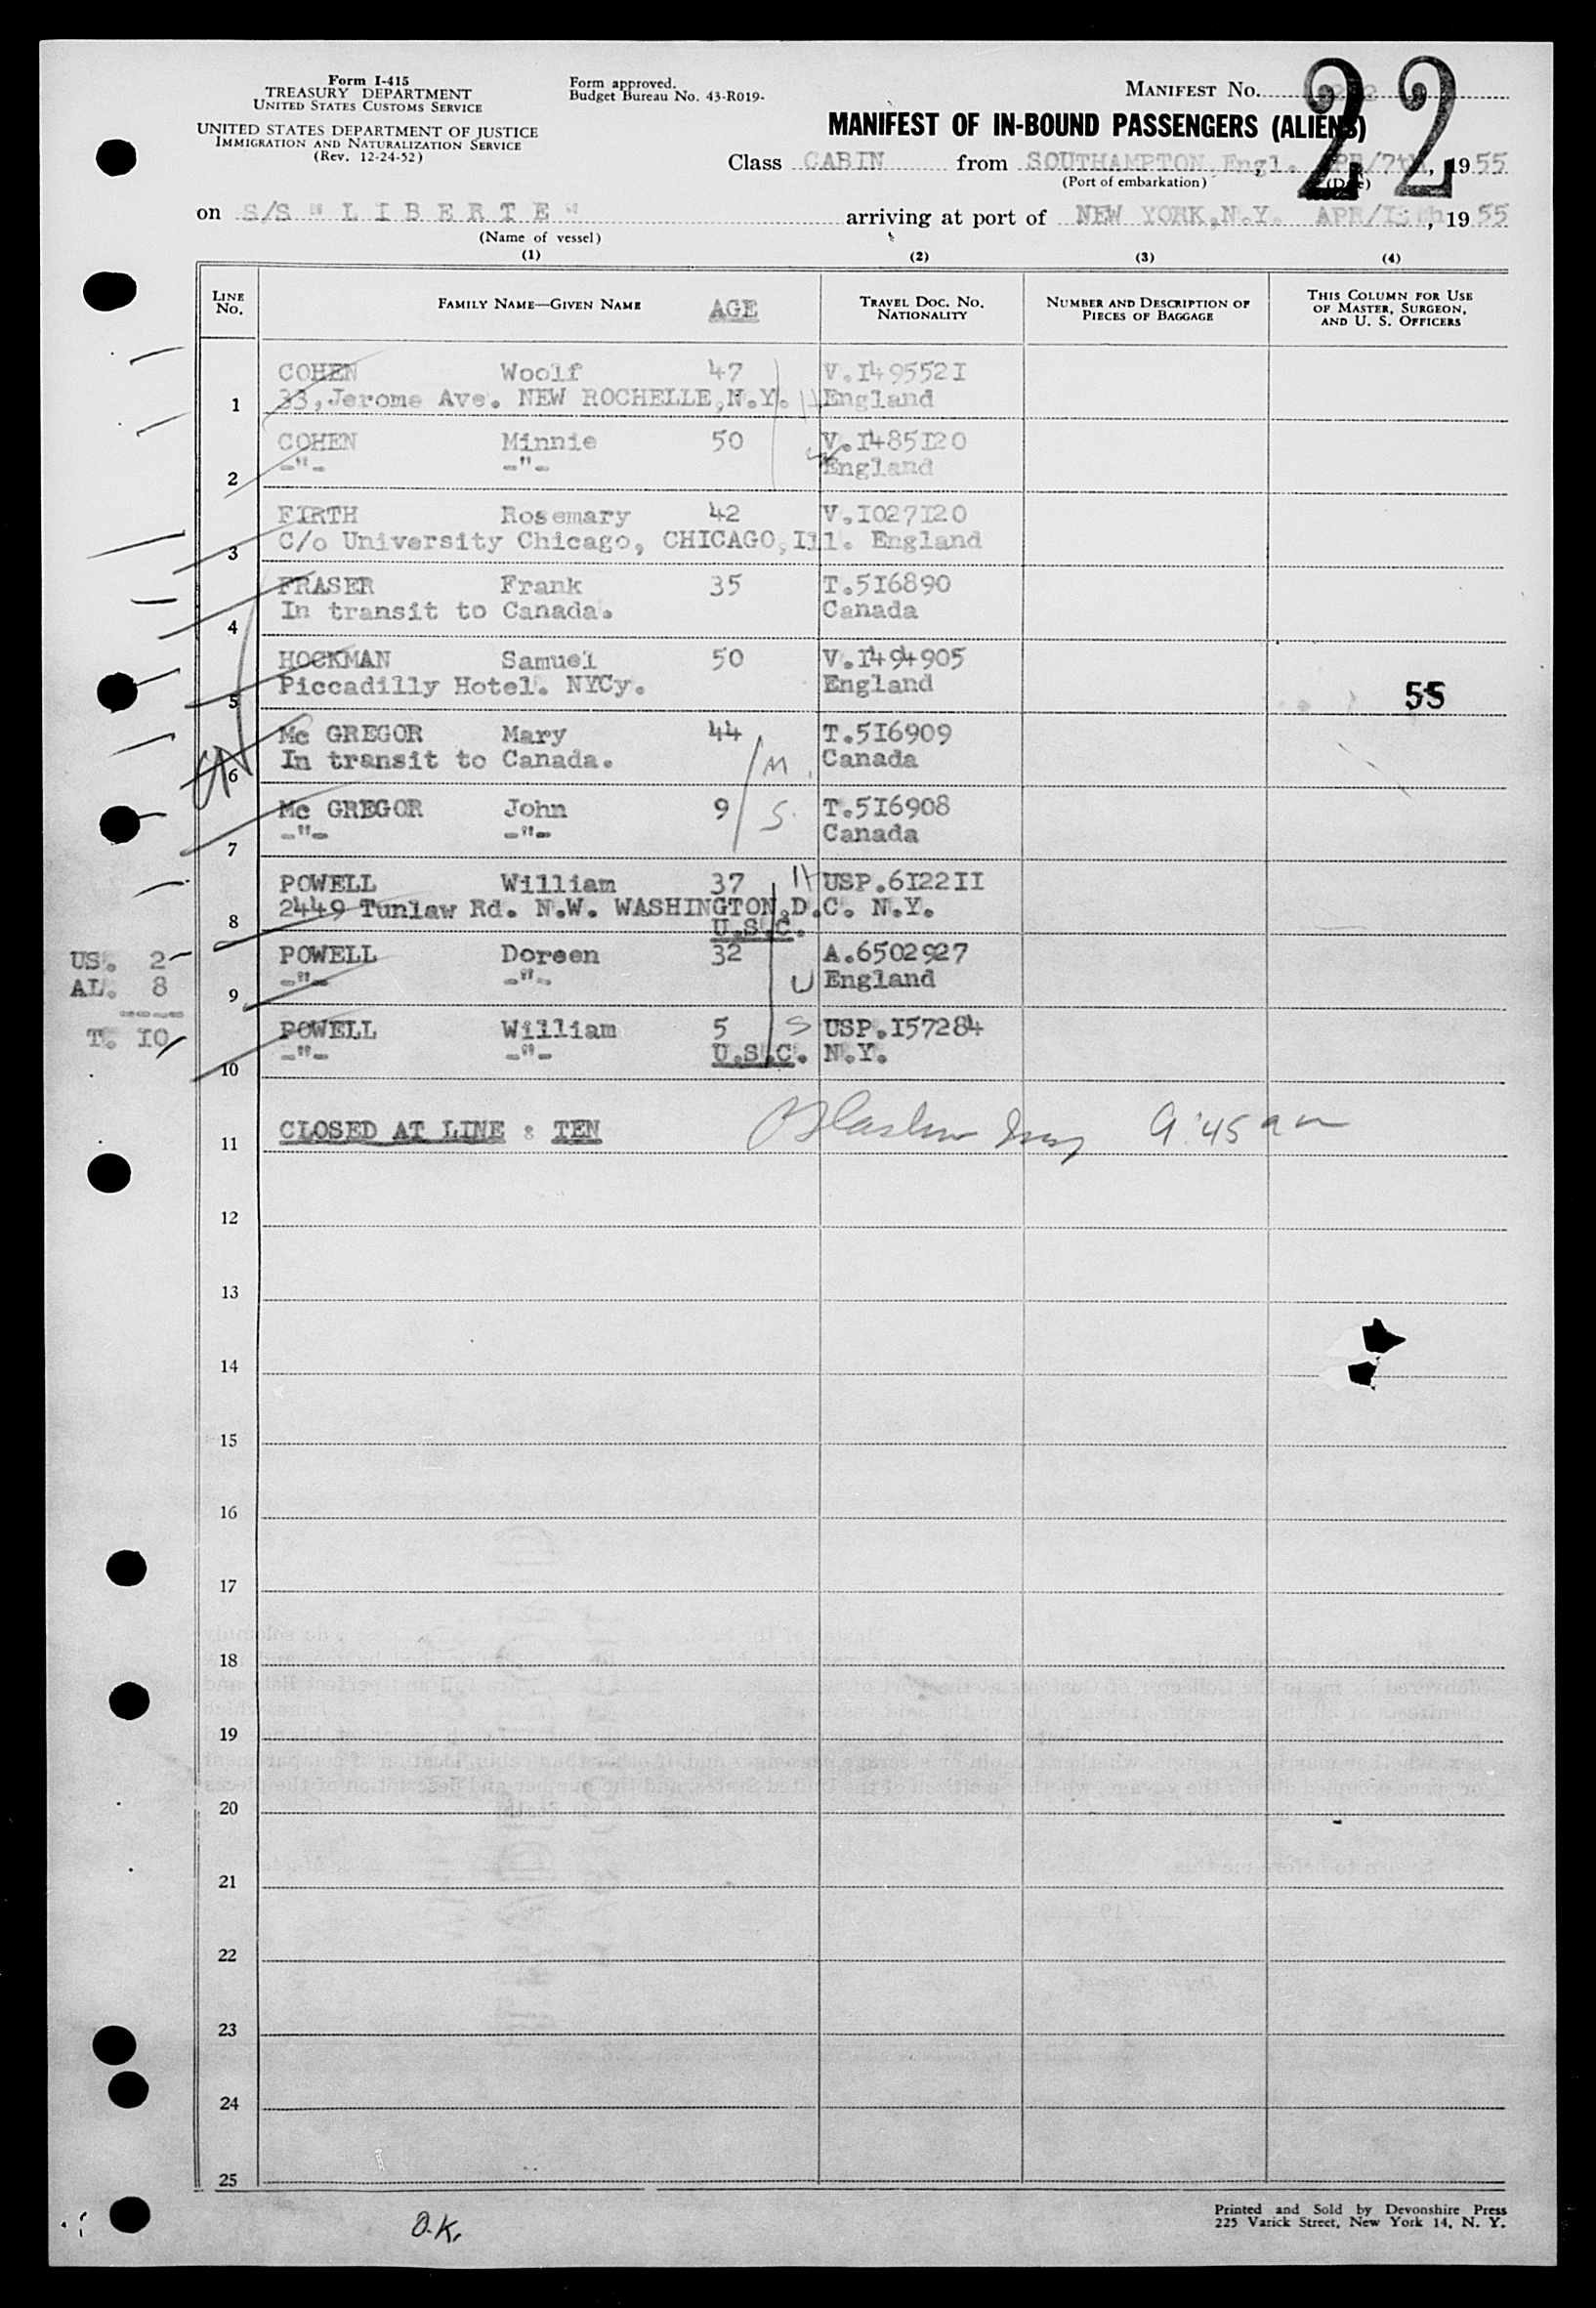 Form I-415
TREASURY DEPARTMENT
UNITED STATES CUSTOMS SERVICE
UNITED STATES DEPARTMENT OF JUSTICE
IMMIGRATION AND NATURALIZATION SERVICE
(Rev. 12-24-52)
Form approved.
Budget Bureau No. 43-R019-
MANIFEST NO.
22
MANIFEST OF IN-BOUND PASSENGERS (ALIENS)
Class CABIN from SOUTHAMPTON, Engl. APR/7th, 1955
(Port of embarkation) (Date)
on S/S "LIBERTE" arriving at port of NEW YORK,N.Y. APR/ , 1955
(Name of vessel)
(1) (2) (3) (4)
LINE NO. FAMILY NAME—GIVEN NAME AGE TRAVEL DOC. NO. NATIONALITY NUMBER AND DESCRIPTION OF PIECES OF BAGGAGE THIS COLUMN FOR USE OF MASTER, SURGEON, AND U. S. OFFICERS
COHEN Woolf 47 V.I49552I
1 33,Jerome Ave. NEW ROCHELLE,N.Y. H England
COHEN Minnie 50 V.I485I20
2 -"- -"- W England
FIRTH Rosemary 42 V.I027I20
3 C/o University Chicago, CHICAGO,Ill. England
FRASER Frank 35 T.5I6890
4 In transit to Canada. Canada
HOCKMAN Samuel 50 V.I494905
5 Piccadilly Hotel. NYCy. England 55
Mc GREGOR Mary 44 T.5I6909
6 In transit to Canada. M. Canada
Mc GREGOR John 9 S. T.5I6908
7 -"- -"- Canada
POWELL William 37 H USP.6I22II
8 2449 Tunlaw Rd. N.W. WASHINGTON,D.C. N.Y.
U.S.C.
US. 2 POWELL Doreen 32 A.6502927
AL. 8 9 -"- -"- W England
----
T. 10 POWELL William 5 S USP.I57284
10 -"- -"- U.S.C. N.Y.
11 CLOSED AT LINE : TEN 9:45 am
12
13
14
15
16
17
18
19
20
21
22
23
24
25
O.K.
Printed and Sold by Devonshire Press
225 Varick Street, New York 14, N. Y.